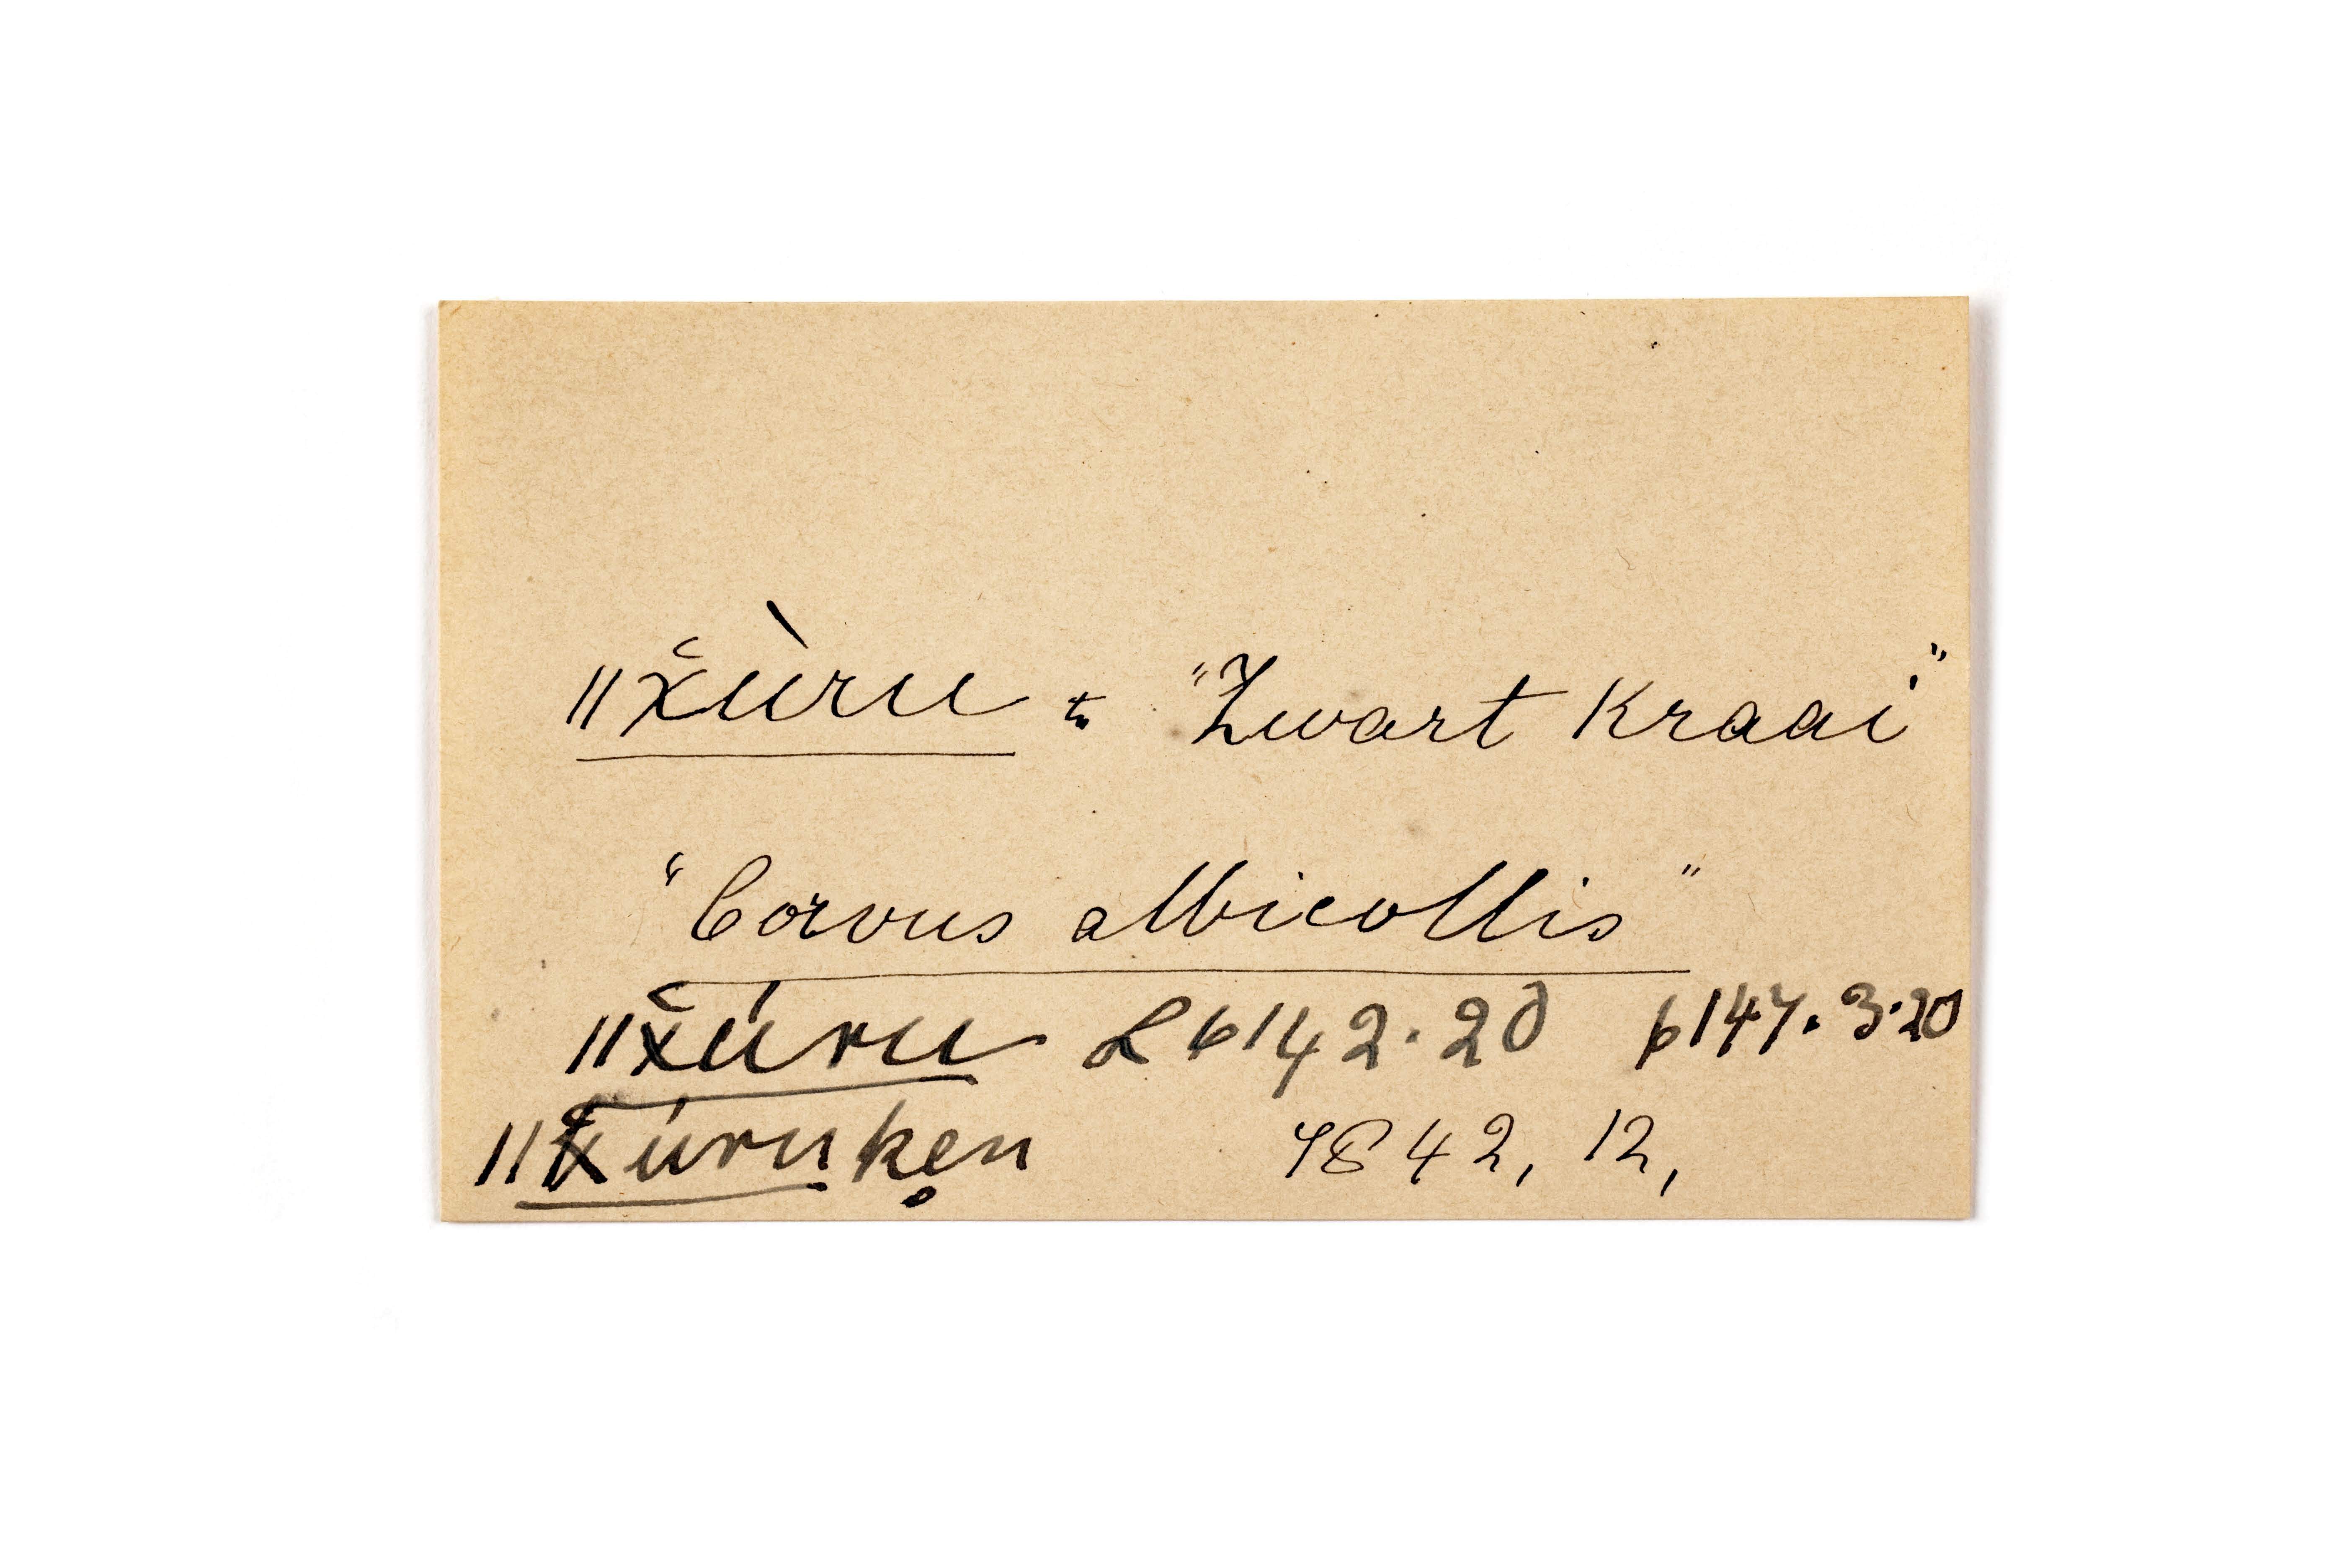 ǁx̆ùru = "Zwart Kraai"
"Corvus albicollis"
ǁx̆úru L b 142. 20 b 147. 3. 20
ǁx̆úruken̩ 4842, 12,